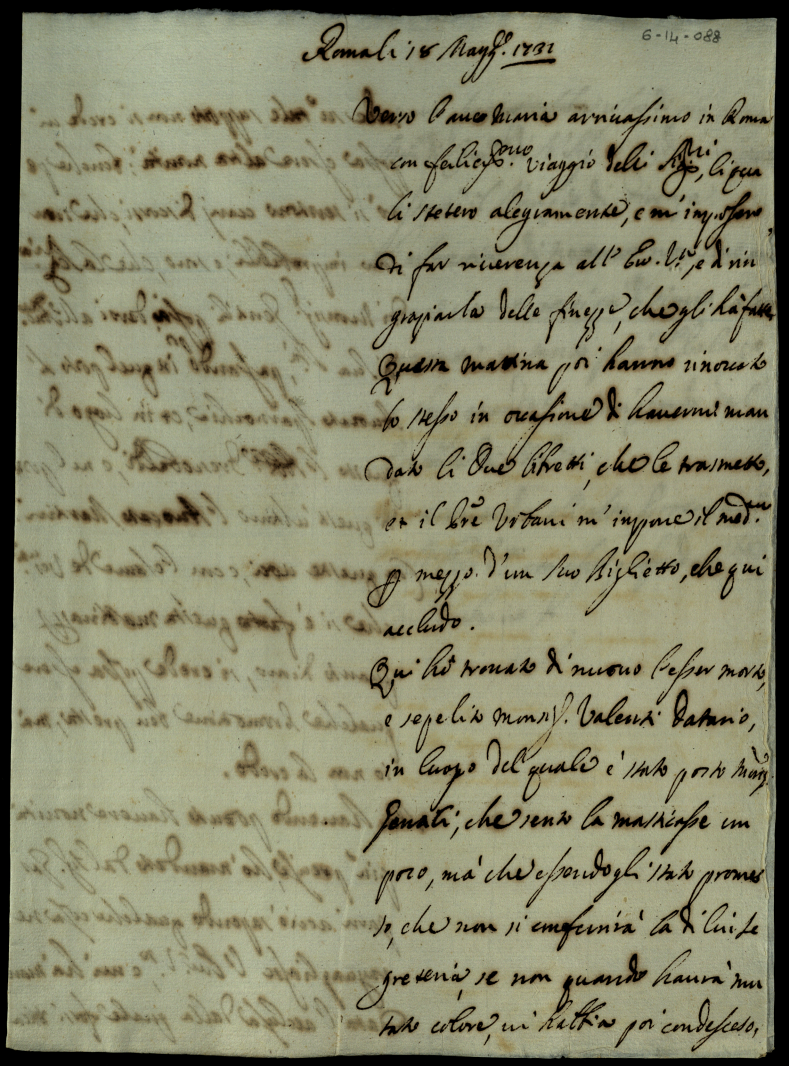 6-14-088
Roma li 18 Magg.º 1731
Verso l'aue Maria arrivassimo in Roma
con felicissº. viaggio delli Sig.ri, li qua
li stetero alegramente, e m'imposero
di far riverenza all' Ecc. V.ra, e di rin
graziarla delle finezze, che gli hà fatte
Questa mattina poi hanno rinovato
lo stesso in occasione di havermi man
dato li due libretti, che le trasmetto,
et il Urbani m'impone il med.mo
mezzo d'un suo Biglietto, che qui
accludo.
Qui hò trovato di nuovo l'esser morto,
e sepelito Monsig. Valenti Datario,
in luogo del quale è stato posto Monsig.
che sento la masticasse un
poco, mà che essendogli stato promes
so, che non si conferirà la di lui Se
greteria, se non quando haurà mu
tato colore, vi habbia poi condesceso,